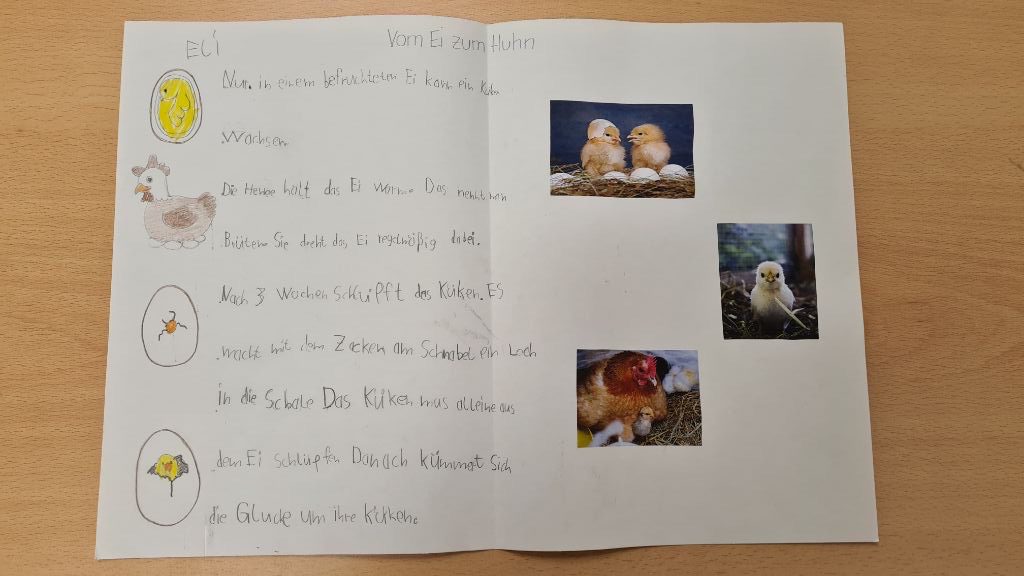 ELI
Vom Ei zum Huhn
Nur in einem befruchteten Ei kann ein Küken
Wachsen
Die Henne hält das Ei warm. Das nennt man
Brüten. Sie dreht das Ei regelmäßig dabei.
Nach 3 Wochen schlüpft das Küken. ES
macht mit dem Zacken am Schnabel ein Loch
in die Schale Das Küken mus alleine aus
dem Ei schlüpfen Danach kümmat Sich
die Glucke um ihre Küken.